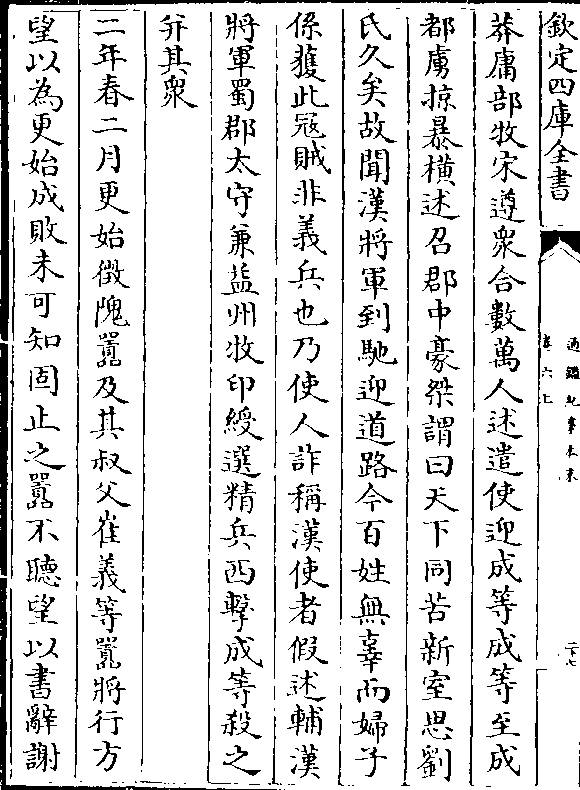 欽定四庫全書
通鑑紀事本末
卷六上
二十七
莽庸部牧宋遵衆合數萬人述遣使迎成等成等至成
都虜掠暴橫述召郡中豪桀謂曰天下同苦新室思劉
氏久矣故聞漢將軍到馳迎道路今百姓無辜而婦子
係獲此寇賊非義兵也乃使人詐稱漢使者假述輔漢
將軍蜀郡太守兼益州牧印綬選精兵西擊成等殺之
并其衆
二年春二月更始徵隗囂及其叔父崔義等囂將行方
望以為更始成敗未可知固止之囂不聽望以書辭謝